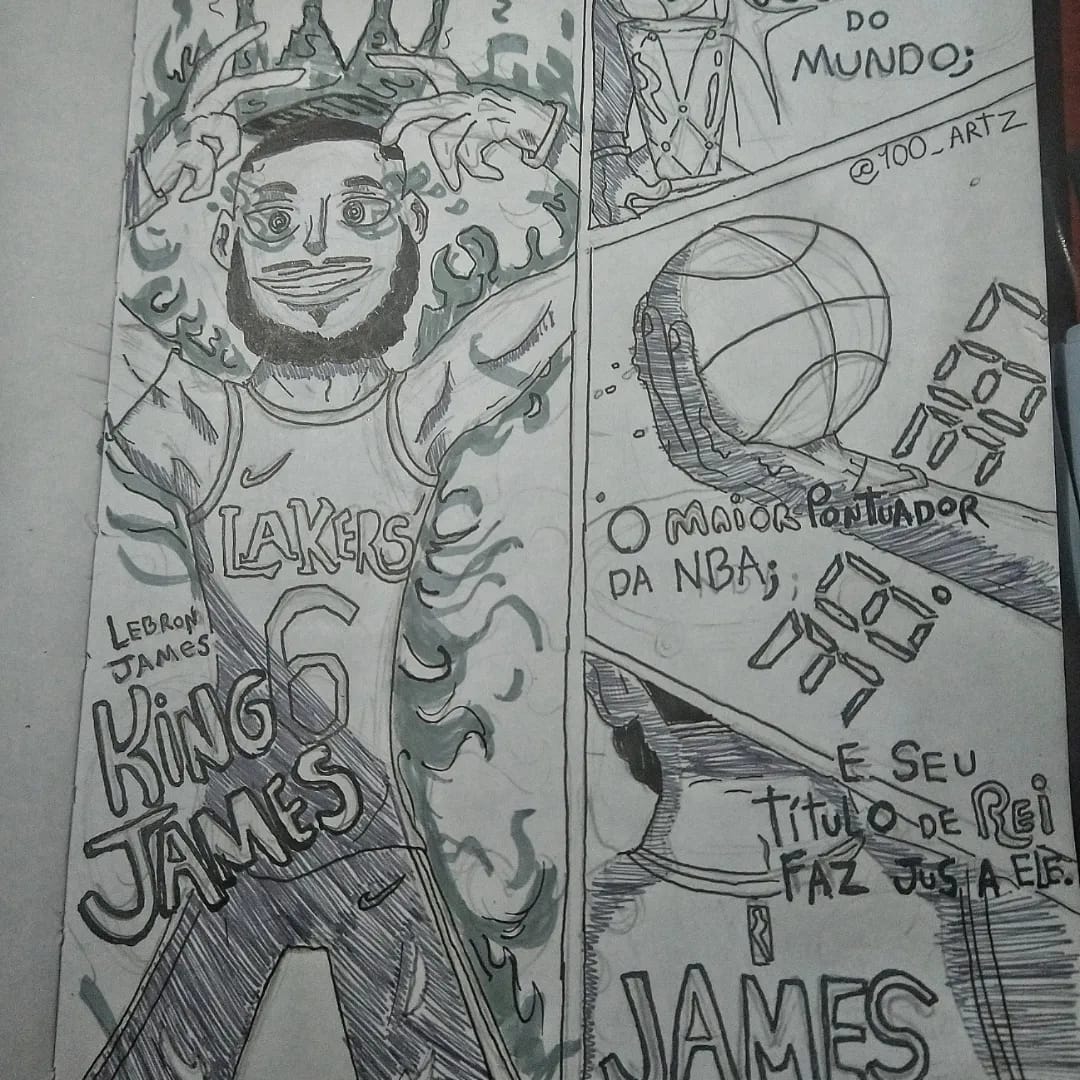 LAKERS
6
LEBRON
JAMES
KING
JAMES
DO
MUNDO;
@100_ARTZ
O MAIOR PONTUADOR
DA NBA;
E SEU
TÍTULO DE REI
FAZ JUS A ELE.
JAMES